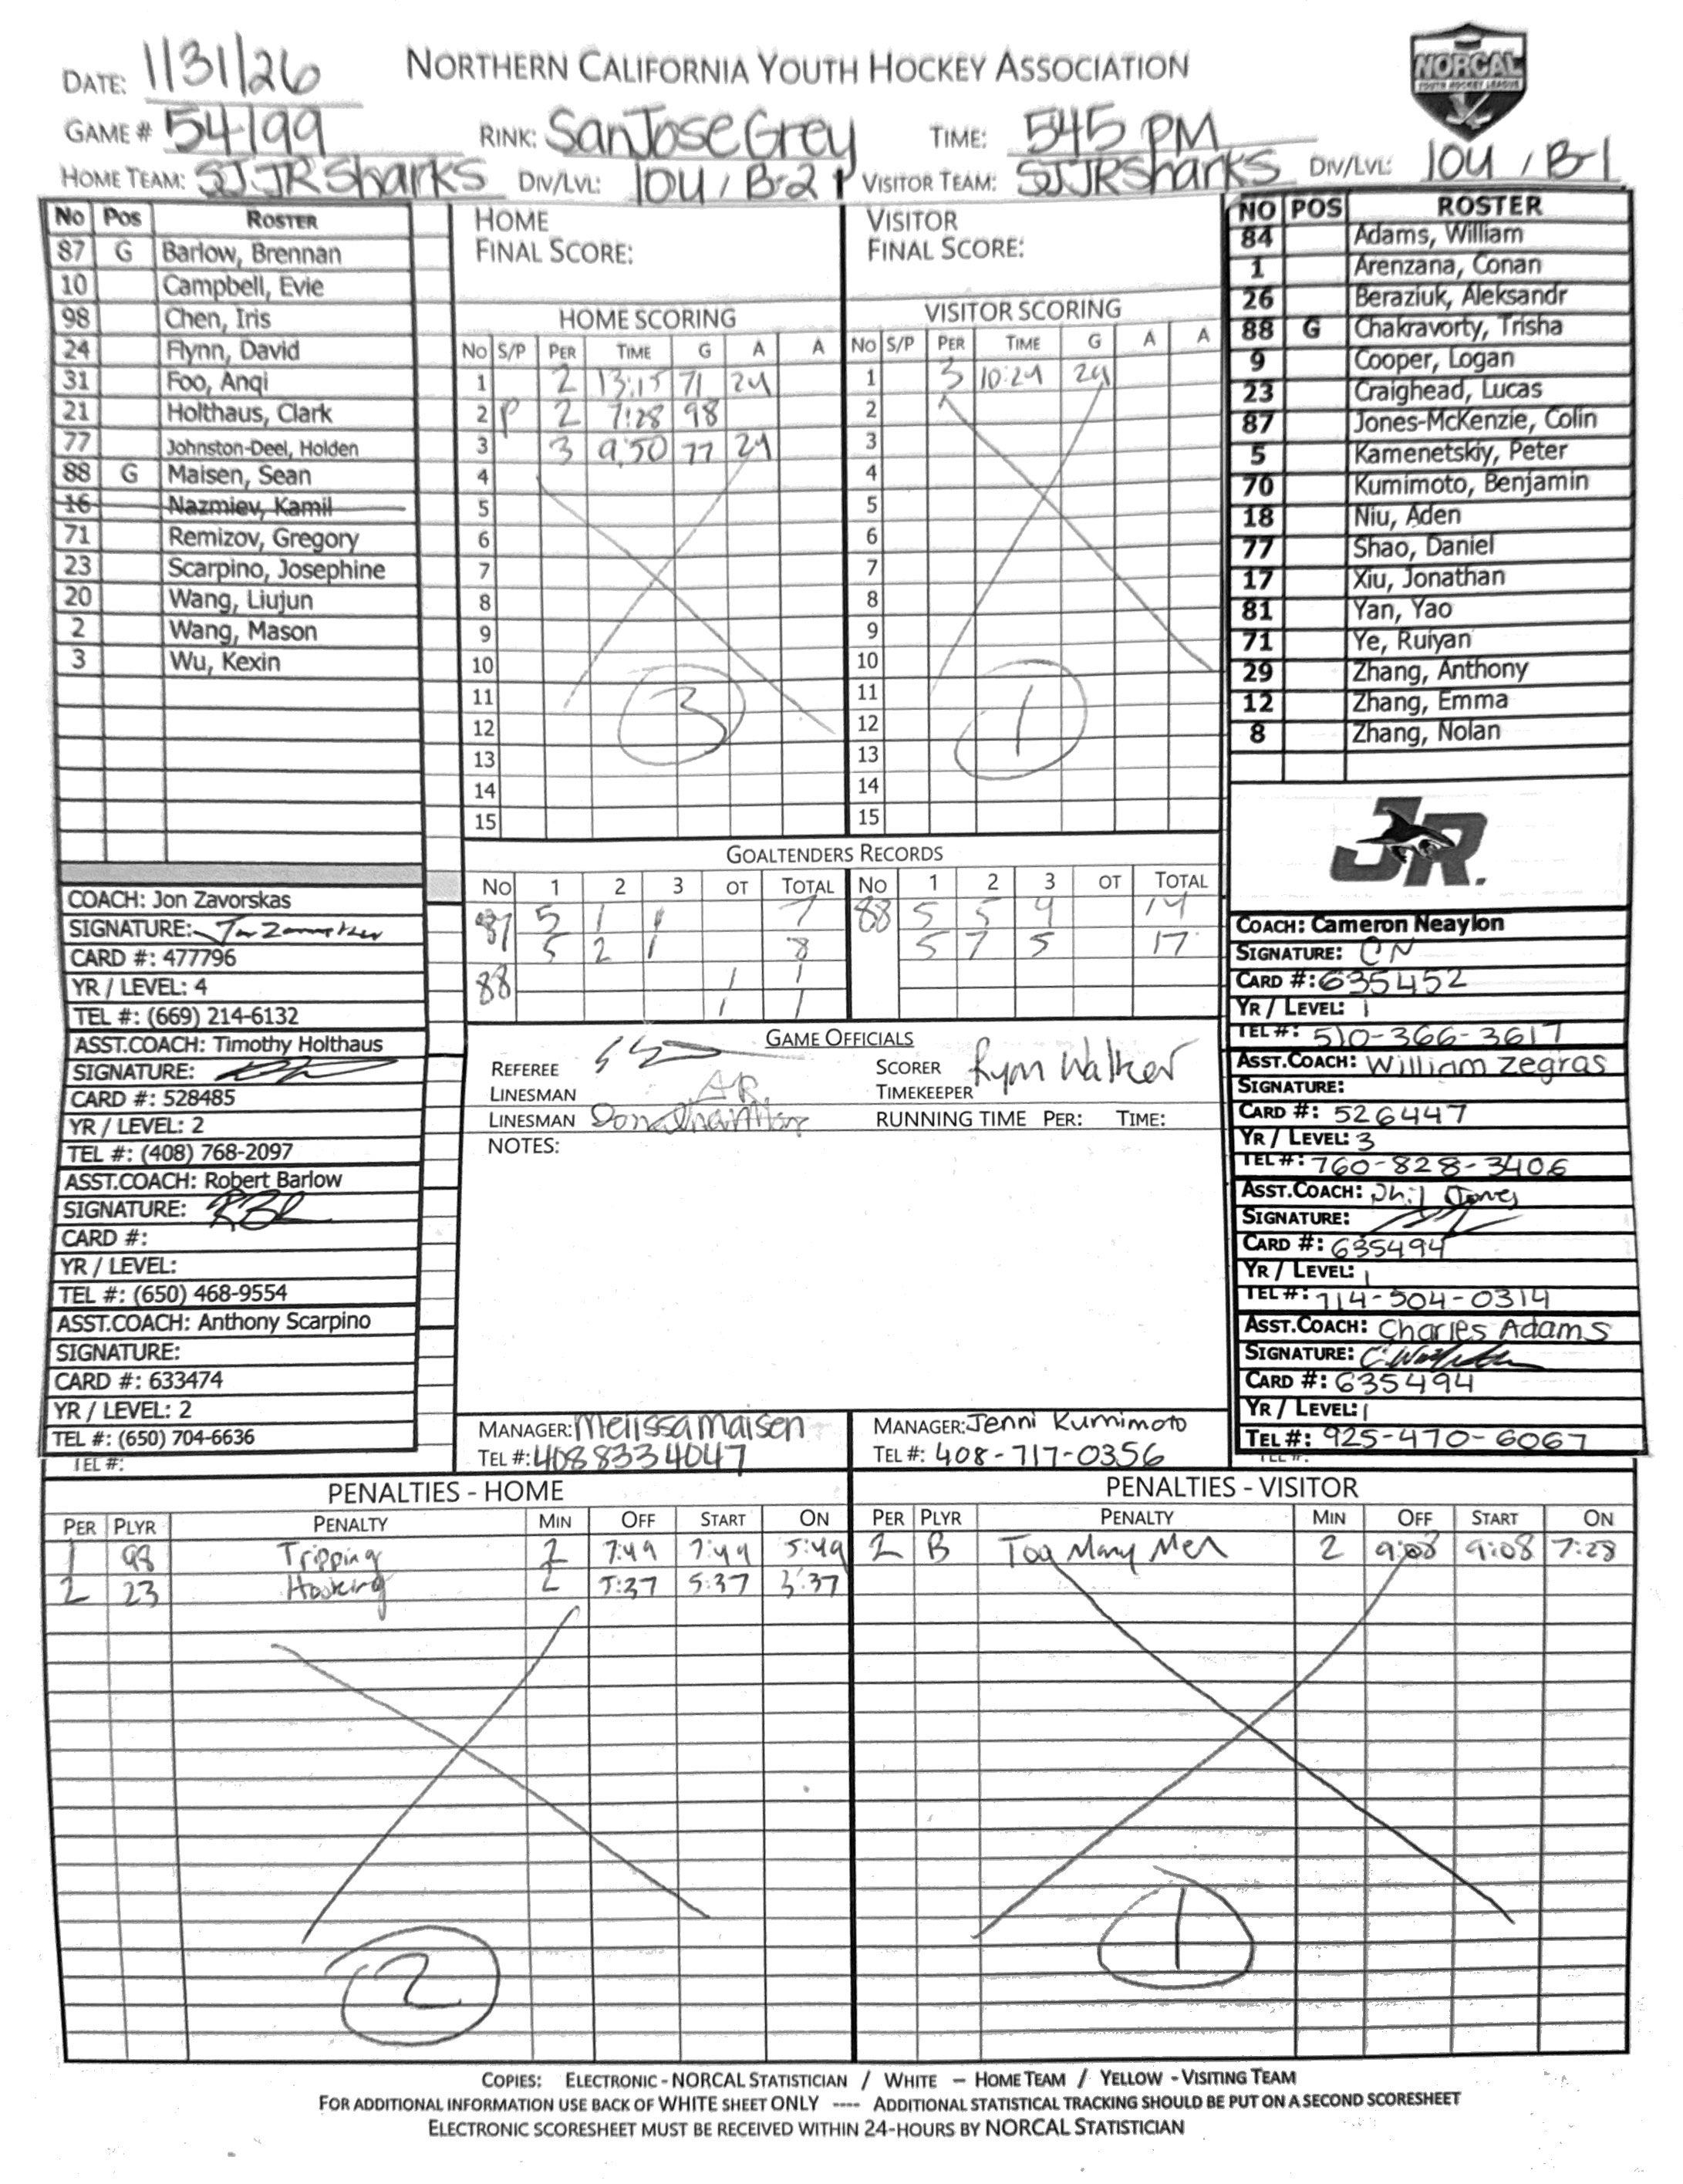 DATE: 1/31/26 NORTHERN CALIFORNIA YOUTH HOCKEY ASSOCIATION NORCAL YOUTH HOCKEY LEAGUE
GAME # 54199 RINK: San Jose Grey TIME: 545 PM
HOME TEAM: SJ JR Sharks DIV/LVL: 10U / B-2 VISITOR TEAM: SJJR Sharks DIV/LVL: 10U / B-1
No Pos ROSTER
87 G Barlow, Brennan
10 Campbell, Evie
98 Chen, Iris
24 Flynn, David
31 Foo, Anqi
21 Holthaus, Clark
77 Johnston-Deel, Holden
88 G Maisen, Sean
16 Nazmiev, Kamil
71 Remizov, Gregory
23 Scarpino, Josephine
20 Wang, Liujun
2 Wang, Mason
3 Wu, Kexin
COACH: Jon Zavorskas
SIGNATURE:
CARD #: 477796
YR / LEVEL: 4
TEL #: (669) 214-6132
ASST.COACH: Timothy Holthaus
SIGNATURE:
CARD #: 528485
YR / LEVEL: 2
TEL #: (408) 768-2097
ASST.COACH: Robert Barlow
SIGNATURE:
CARD #:
YR / LEVEL:
TEL #: (650) 468-9554
ASST.COACH: Anthony Scarpino
SIGNATURE:
CARD #: 633474
YR / LEVEL: 2
TEL #: (650) 704-6636
TEL #:
HOME
FINAL SCORE:
HOME SCORING
No S/P PER TIME G A A
1 2 13:15 71 24
2 P 2 7:28 98
3 3 9:50 77 24
4
5
6
7
8
9
10
11
12
13
14
15
3
VISITOR
FINAL SCORE:
VISITOR SCORING
No S/P PER TIME G A A
1 3 10:24 29
2
3
4
5
6
7
8
9
10
11
12
13
14
15
1
GOALTENDERS RECORDS
No 1 2 3 OT TOTAL No 1 2 3 OT TOTAL
87 5 1 1 7 88 5 5 4 14
5 2 1 8 5 7 5 17
88 1 1
1 1
GAME OFFICIALS
REFEREE SCORER Ryan Walker
LINESMAN AR TIMEKEEPER
LINESMAN RUNNING TIME PER: TIME:
NOTES:
MANAGER: Melissa Maisen MANAGER: Jenni Kumimoto
TEL #: 4088334047 TEL #: 408-717-0356
NO POS ROSTER
84 Adams, William
1 Arenzana, Conan
26 Beraziuk, Aleksandr
88 G Chakravorty, Trisha
9 Cooper, Logan
23 Craighead, Lucas
87 Jones-McKenzie, Colin
5 Kamenetskiy, Peter
70 Kumimoto, Benjamin
18 Niu, Aden
77 Shao, Daniel
17 Xiu, Jonathan
81 Yan, Yao
71 Ye, Ruiyan
29 Zhang, Anthony
12 Zhang, Emma
8 Zhang, Nolan
JR.
COACH: Cameron Neaylon
SIGNATURE: CN
CARD #: 635452
YR / LEVEL: 1
TEL #: 510-366-3617
ASST.COACH: William Zegras
SIGNATURE:
CARD #: 526447
YR / LEVEL: 3
TEL #: 760-828-3406
ASST.COACH: Phil Jones
SIGNATURE:
CARD #: 635494
YR / LEVEL: 1
TEL #: 714-504-0314
ASST.COACH: Charles Adams
SIGNATURE:
CARD #: 635494
YR / LEVEL: 1
TEL #: 925-470-6067
TEL #:
PENALTIES - HOME
PER PLYR PENALTY MIN OFF START ON
1 98 Tripping 2 7:49 7:49 5:49
2 23 Hooking 2 5:37 5:37 3:37
2
PENALTIES - VISITOR
PER PLYR PENALTY MIN OFF START ON
2 B Too Many Men 2 9:08 9:08 7:28
1
COPIES: ELECTRONIC - NORCAL STATISTICIAN / WHITE – HOME TEAM / YELLOW - VISITING TEAM
FOR ADDITIONAL INFORMATION USE BACK OF WHITE SHEET ONLY ---- ADDITIONAL STATISTICAL TRACKING SHOULD BE PUT ON A SECOND SCORESHEET
ELECTRONIC SCORESHEET MUST BE RECEIVED WITHIN 24-HOURS BY NORCAL STATISTICIAN